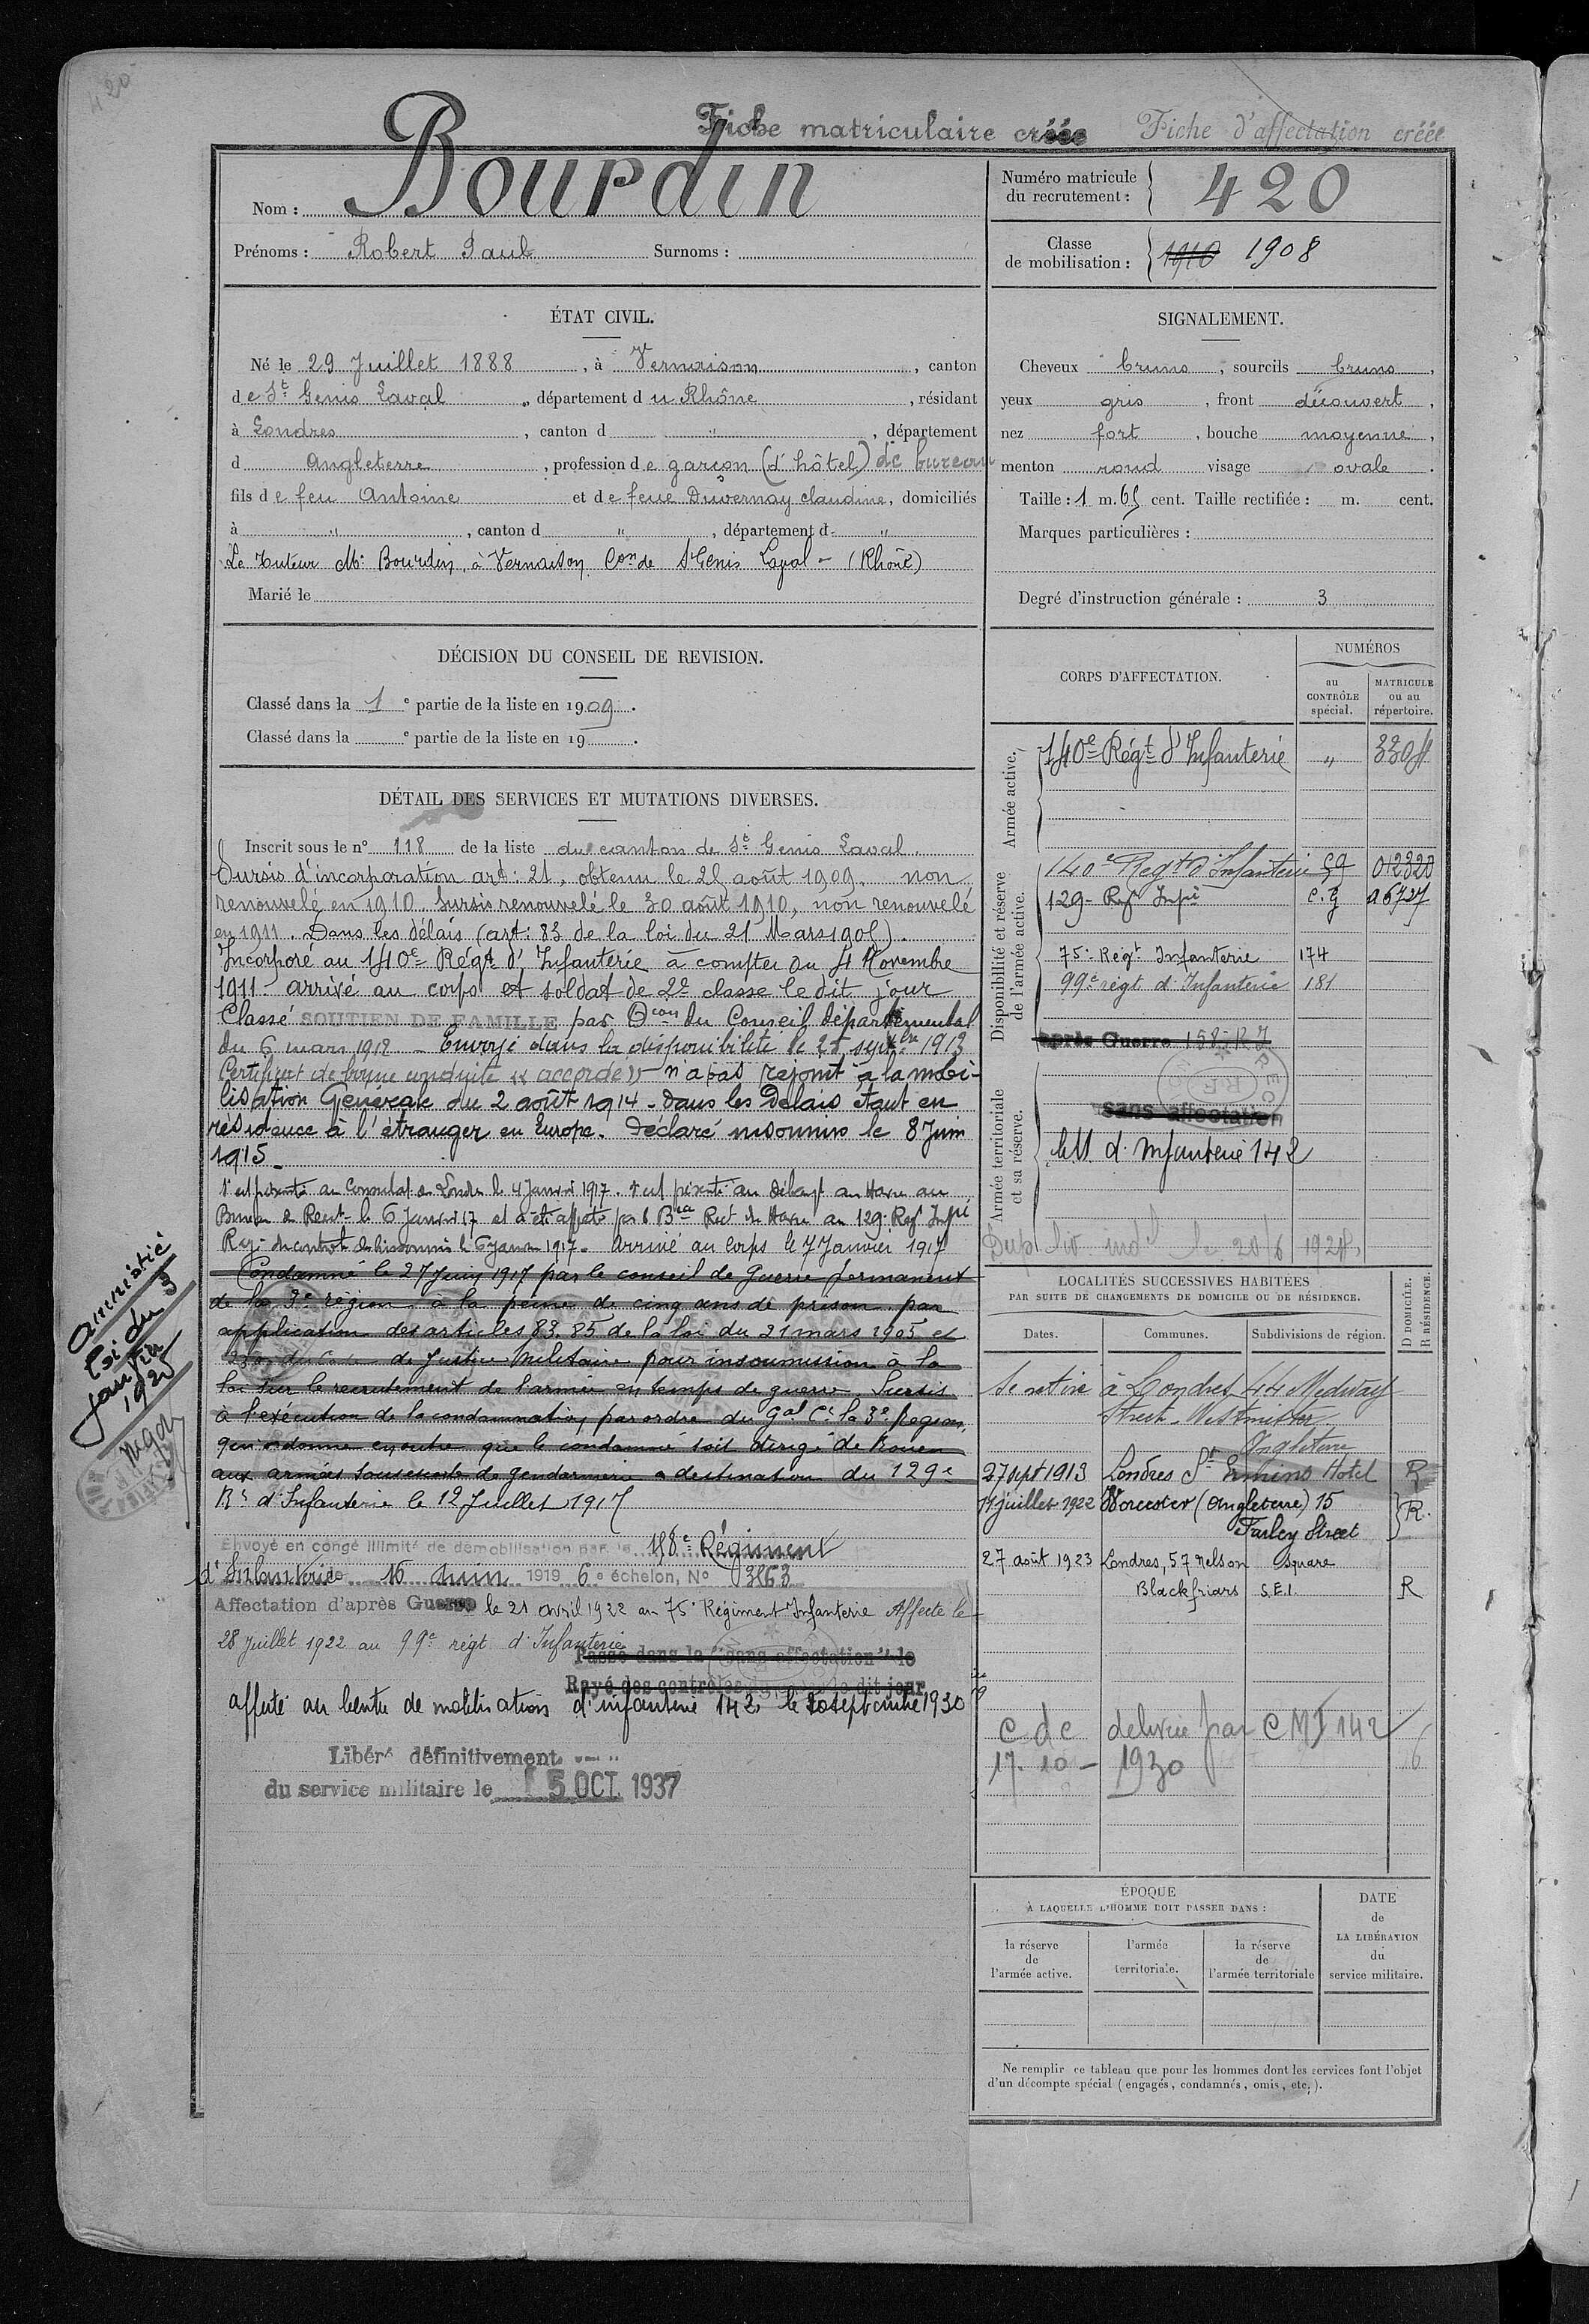 420
Fiche matriculaire créée Fiche d'affectation créée
Nom : Bourdin
Prénoms : Robert Paul Surnoms :
Numéro matricule
du recrutement : 420
Classe
de mobilisation : 1910 1908
ÉTAT CIVIL.
Né le 29 Juillet 1888, à Vernaison, canton
de St Genis Laval, département du Rhône, résidant
à Londres, canton d ", département
d Angleterre, profession de garçon (d'hôtel) de bureau
fils de feu Antoine et de feue Duvernay claudine, domiciliés
à ", canton d ", département d "
Le tuteur Mr Bourdin, à Vernaison Con de St Genis Laval - (Rhône)
Marié le
SIGNALEMENT.
Cheveux bruns, sourcils bruns,
yeux gris, front découvert,
nez fort, bouche moyenne,
menton rond visage ovale.
Taille : 1 m. 65 cent. Taille rectifiée : m. cent.
Marques particulières :
Degré d'instruction générale : 3
DÉCISION DU CONSEIL DE REVISION.
Classé dans la 1e partie de la liste en 1909.
Classé dans la e partie de la liste en 19 .
DÉTAIL DES SERVICES ET MUTATIONS DIVERSES.
Inscrit sous le n° 118 de la liste du canton de St Genis Laval.
Sursis d'incorporation art: 21, obtenu le 25 août 1909. non
renouvelé en 1910. Sursis renouvelé le 30 août 1910, non renouvelé
en 1911. Dans les délais (art: 83 de la loi du 21 Mars 1905).
Incorporé au 140e Régt d'Infanterie à compter du 4 Novembre
1911 arrivé au corps et soldat de 2e classe le dit jour
Classé SOUTIEN DE FAMILLE par Dcon du Conseil départemental
du 6 mars 1912 - Envoyé dans la disponibilité le 25 septbre 1913
Certificat de bonne conduite « accordé » n'a pas rejoint à la mobi-
lisation Générale du 2 août 1914 - dans les Délais étant en
résidence à l'étranger en Europe. Déclaré insoumis le 8 Juin
1915
S'est présenté au Consulat de Londres le 4 Janvier 1917. s'est présenté au débarqt au Havre au
Bureau de Recrt le 6 Janvier 17 et a été affecté par le Bau Rect du Havre au 129e Regt Infie
Rayé du control de l'insoumis le 6 Janvier 1917. Arrivé au corps le 7 Janvier 1917
Condamné le 27 Juin 1917 par le conseil de Guerre permanent
de la 3e région à la peine de cinq ans de prison par
application des articles 83. 85 de la loi du 21 mars 1905 et
230 du Code de Justice Militaire pour insoumission à la
loi sur le recrutement de l'armée en temps de guerre. Sursis
à l'exécution de la condamnation, par ordre du Gal Ct la 3e Region,
qui ordonne en outre que le condamné soit dirigé de Rouen
aux armées sous escorte de gendarmerie à destination du 129e
Rt d'Infanterie le 12 Juillet 1917
Envoyé en congé illimité de démobilisation par le 158e Régiment
d'Infanterie 16 Juin 1919 6e échelon, N° 3863
Affectation d'après Guerre le 21 avril 1922 au 75e Régiment Infanterie Affecté le
28 Juillet 1922 au 99e régt d'Infanterie
Passé dans la "sans affectation" le
Rayé des contrôles le dit jour
affecté au centre de mobilisation d'infanterie 142 le 20 septembre 1930
Libéré définitivement
du service militaire le 15 OCT. 1937
amnistié
loi du 3
janvier
1925
CORPS D'AFFECTATION.
NUMÉROS
au
CONTRÔLE
spécial.
MATRICULE
ou au
répertoire.
Armée active.
140e Régt d'Infanterie "
Disponibilité et réserve
de l'armée active.
140e Regt d'Infanterie 012320
129e Regt Infie C. G
75e Regt Infanterie 174
99e régt d'Infanterie 181
après Guerre 158 R I
Armée territoriale
et sa réserve.
sans affectation
CM d'Infanterie 142
LOCALITÉS SUCCESSIVES HABITÉES
PAR SUITE DE CHANGEMENTS DE DOMICILE OU DE RÉSIDENCE.
D DOMICILE.
R RÉSIDENCE.
Dates. Communes. Subdivisions de région.
Se retire à Londres 44 Medway
Street - Westminster
Angleterre
27 sept 1913 Londres St Hotel R
juillet 1922 Worcester (Angleterre) 15
Farley Street R.
27 août 1923 Londres, 57 Nelson Square
Blackfriars S.E.1. R
C de délivrée par CMI 142
17. 10 - 1930
ÉPOQUE
À LAQUELLE L'HOMME DOIT PASSER DANS :
la réserve
de
l'armée active.
l'armée
territoriale.
la réserve
de
l'armée territoriale
DATE
de
LA LIBÉRATION
du
service militaire.
Ne remplir ce tableau que pour les hommes dont les services font l'objet
d'un décompte spécial (engagés, condamnés, omis, etc.).